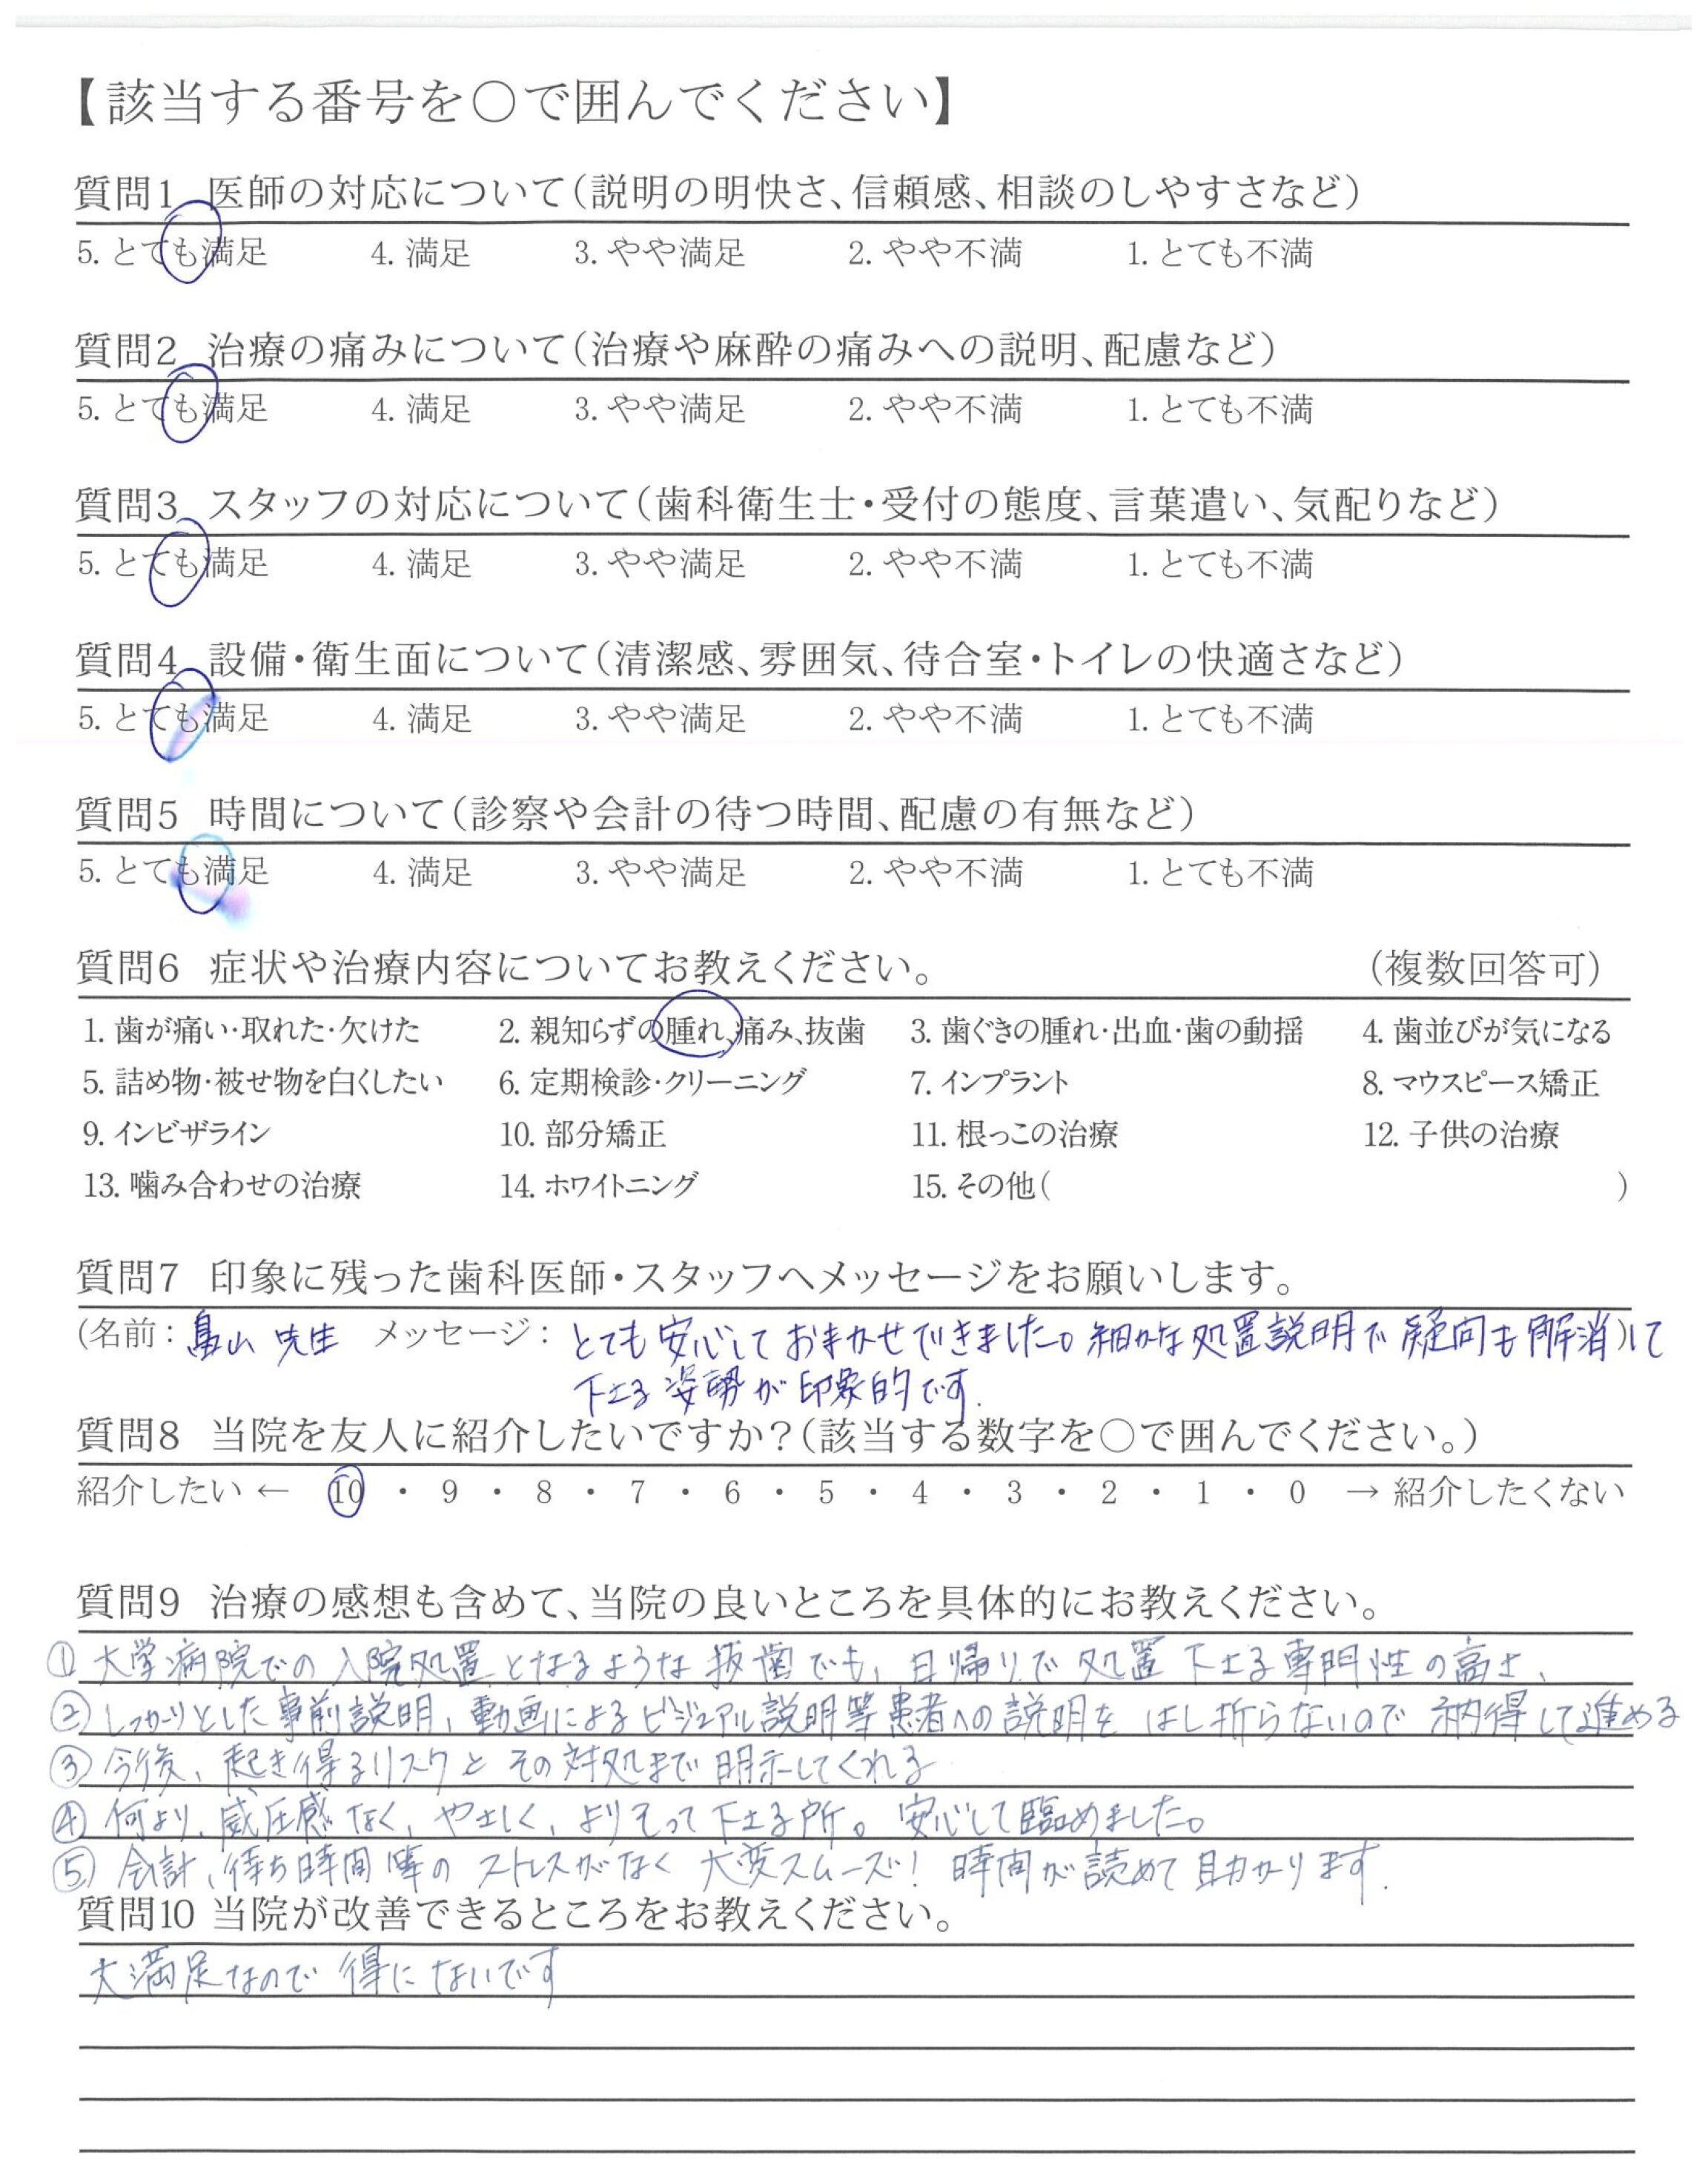 【該当する番号を○で囲んでください】
質問1 医師の対応について(説明の明快さ、信頼感、相談のしやすさなど)
5. とても満足 4. 満足 3. やや満足 2. やや不満 1. とても不満
質問2 治療の痛みについて(治療や麻酔の痛みへの説明、配慮など)
5. とても満足 4. 満足 3. やや満足 2. やや不満 1. とても不満
質問3 スタッフの対応について(歯科衛生士・受付の態度、言葉遣い、気配りなど)
5. とても満足 4. 満足 3. やや満足 2. やや不満 1. とても不満
質問4 設備・衛生面について(清潔感、雰囲気、待合室・トイレの快適さなど)
5. とても満足 4. 満足 3. やや満足 2. やや不満 1. とても不満
質問5 時間について(診察や会計の待つ時間、配慮の有無など)
5. とても満足 4. 満足 3. やや満足 2. やや不満 1. とても不満
質問6 症状や治療内容についてお教えください。 (複数回答可)
1. 歯が痛い・取れた・欠けた 2. 親知らずの腫れ、痛み、抜歯 3. 歯ぐきの腫れ・出血・歯の動揺 4. 歯並びが気になる
5. 詰め物・被せ物を白くしたい 6. 定期検診・クリーニング 7. インプラント 8. マウスピース矯正
9. インビザライン 10. 部分矯正 11. 根っこの治療 12. 子供の治療
13. 噛み合わせの治療 14. ホワイトニング 15. その他( )
質問7 印象に残った歯科医師・スタッフへメッセージをお願いします。
(名前: 畠山 先生 メッセージ: とても安心しておまかせできました。細かな処置説明で疑問も解消して
下さる姿勢が印象的です.
質問8 当院を友人に紹介したいですか?(該当する数字を○で囲んでください。)
紹介したい ← 10 ・ 9 ・ 8 ・ 7 ・ 6 ・ 5 ・ 4 ・ 3 ・ 2 ・ 1 ・ 0 → 紹介したくない
質問9 治療の感想も含めて、当院の良いところを具体的にお教えください。
① 大学病院での入院処置となるような抜歯でも、日帰りで処置下さる専門性の高さ、
② しっかりとした事前説明、動画によるビジュアル説明等患者への説明をはし折らないので納得して進める
③ 今後、起き得るリスクとその対処まで明示してくれる
④ 何より、威圧感なく、やさしく、よりそって下さる所。安心して臨めました。
⑤ 会計、待ち時間等のストレスがなく大変スムーズ! 時間が読めて助かります.
質問10 当院が改善できるところをお教えください。
大満足なので得にないです